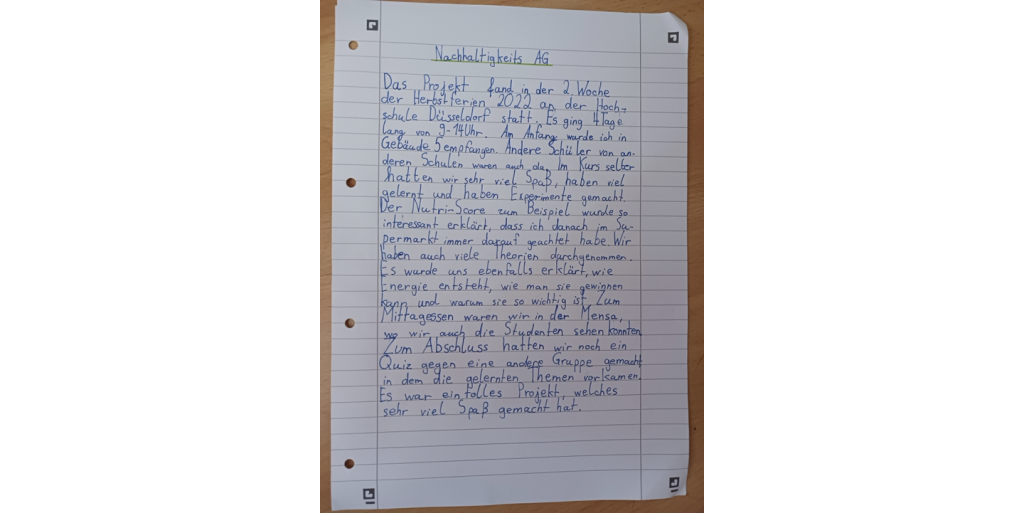 Nachhaltigkeits AG
Das Projekt fand in der 2. Woche
der Herbstferien 2022 an der Hoch-
schule Düsseldorf statt. Es ging 4 Tage
lang von 9-14 Uhr. Am Anfang wurde ich in
Gebäude 5 empfangen. Andere Schüler von an-
deren Schulen waren auch da. Im Kurs selber
hatten wir sehr viel Spaß, haben viel
gelernt und haben Experimente gemacht.
Der Nutri-Score zum Beispiel wurde so
interessant erklärt, dass ich danach im Su-
permarkt immer darauf geachtet habe. Wir
haben auch viele Theorien durchgenommen.
Es wurde uns ebenfalls erklärt, wie
Energie entsteht, wie man sie gewinnen
kann und warum sie so wichtig ist. Zum
Mittagessen waren wir in der Mensa,
wo wir auch die Studenten sehen konnten.
Zum Abschluss hatten wir noch ein
Quiz gegen eine andere Gruppe gemacht
in dem die gelernten Themen vorkamen.
Es war ein tolles Projekt, welches
sehr viel Spaß gemacht hat.